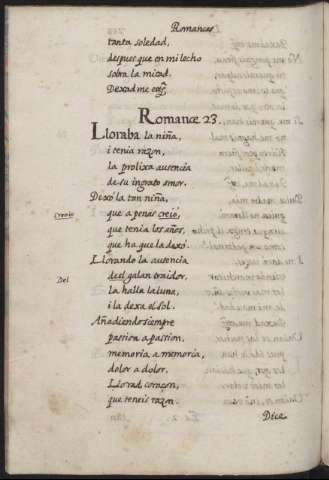 Romances
tanta soledad,
despues que en mi lecho
sobra la mitad.
Dexadme etc.
Romance 23.
Lloraba la niña,
i tenia razon,
la prolixa ausencia
de su ingrato amor.
Dexó la tan niña,
Creolo
que a penas creió,
que tenia los años,
que ha que la dexó.
Llorando la ausencia
Del
del galan traidor,
la halla la luna,
i la dexa el sol.
Añadiendo siempre
passion a passion,
memoria a memoria,
dolor a dolor.
Llorad coraçon,
que teneis razon.
Dice